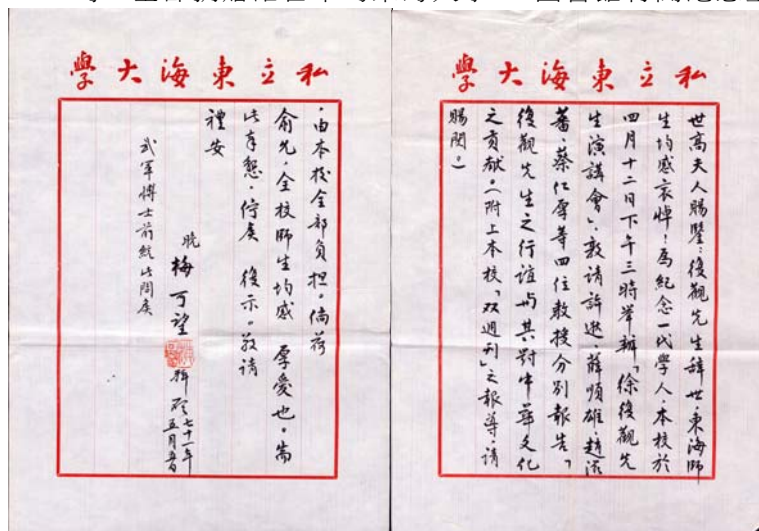 私立東海大學
世高夫人賜鑒:復觀先生辭世,東海師
生均感哀悼!為紀念一代學人,本校於
四月十二日下午三時举辦「徐復觀先
生演講會」,敦請許逖、薛順雄、趙滋
蕃、蔡仁厚等四位教授分別報告「
復觀先生之行誼與其對中華文化
之貢獻。(附上本校「双週刊」之報導,請
賜閱。)
私立東海大學
,由本校全部負担。倘荷
俞允,全校師生均感 厚愛也。耑
此奉懇,佇候 復示。敬請
禮安
晚 梅可望 拜啟 七十一年
五月五日
武軍博士前統此問候